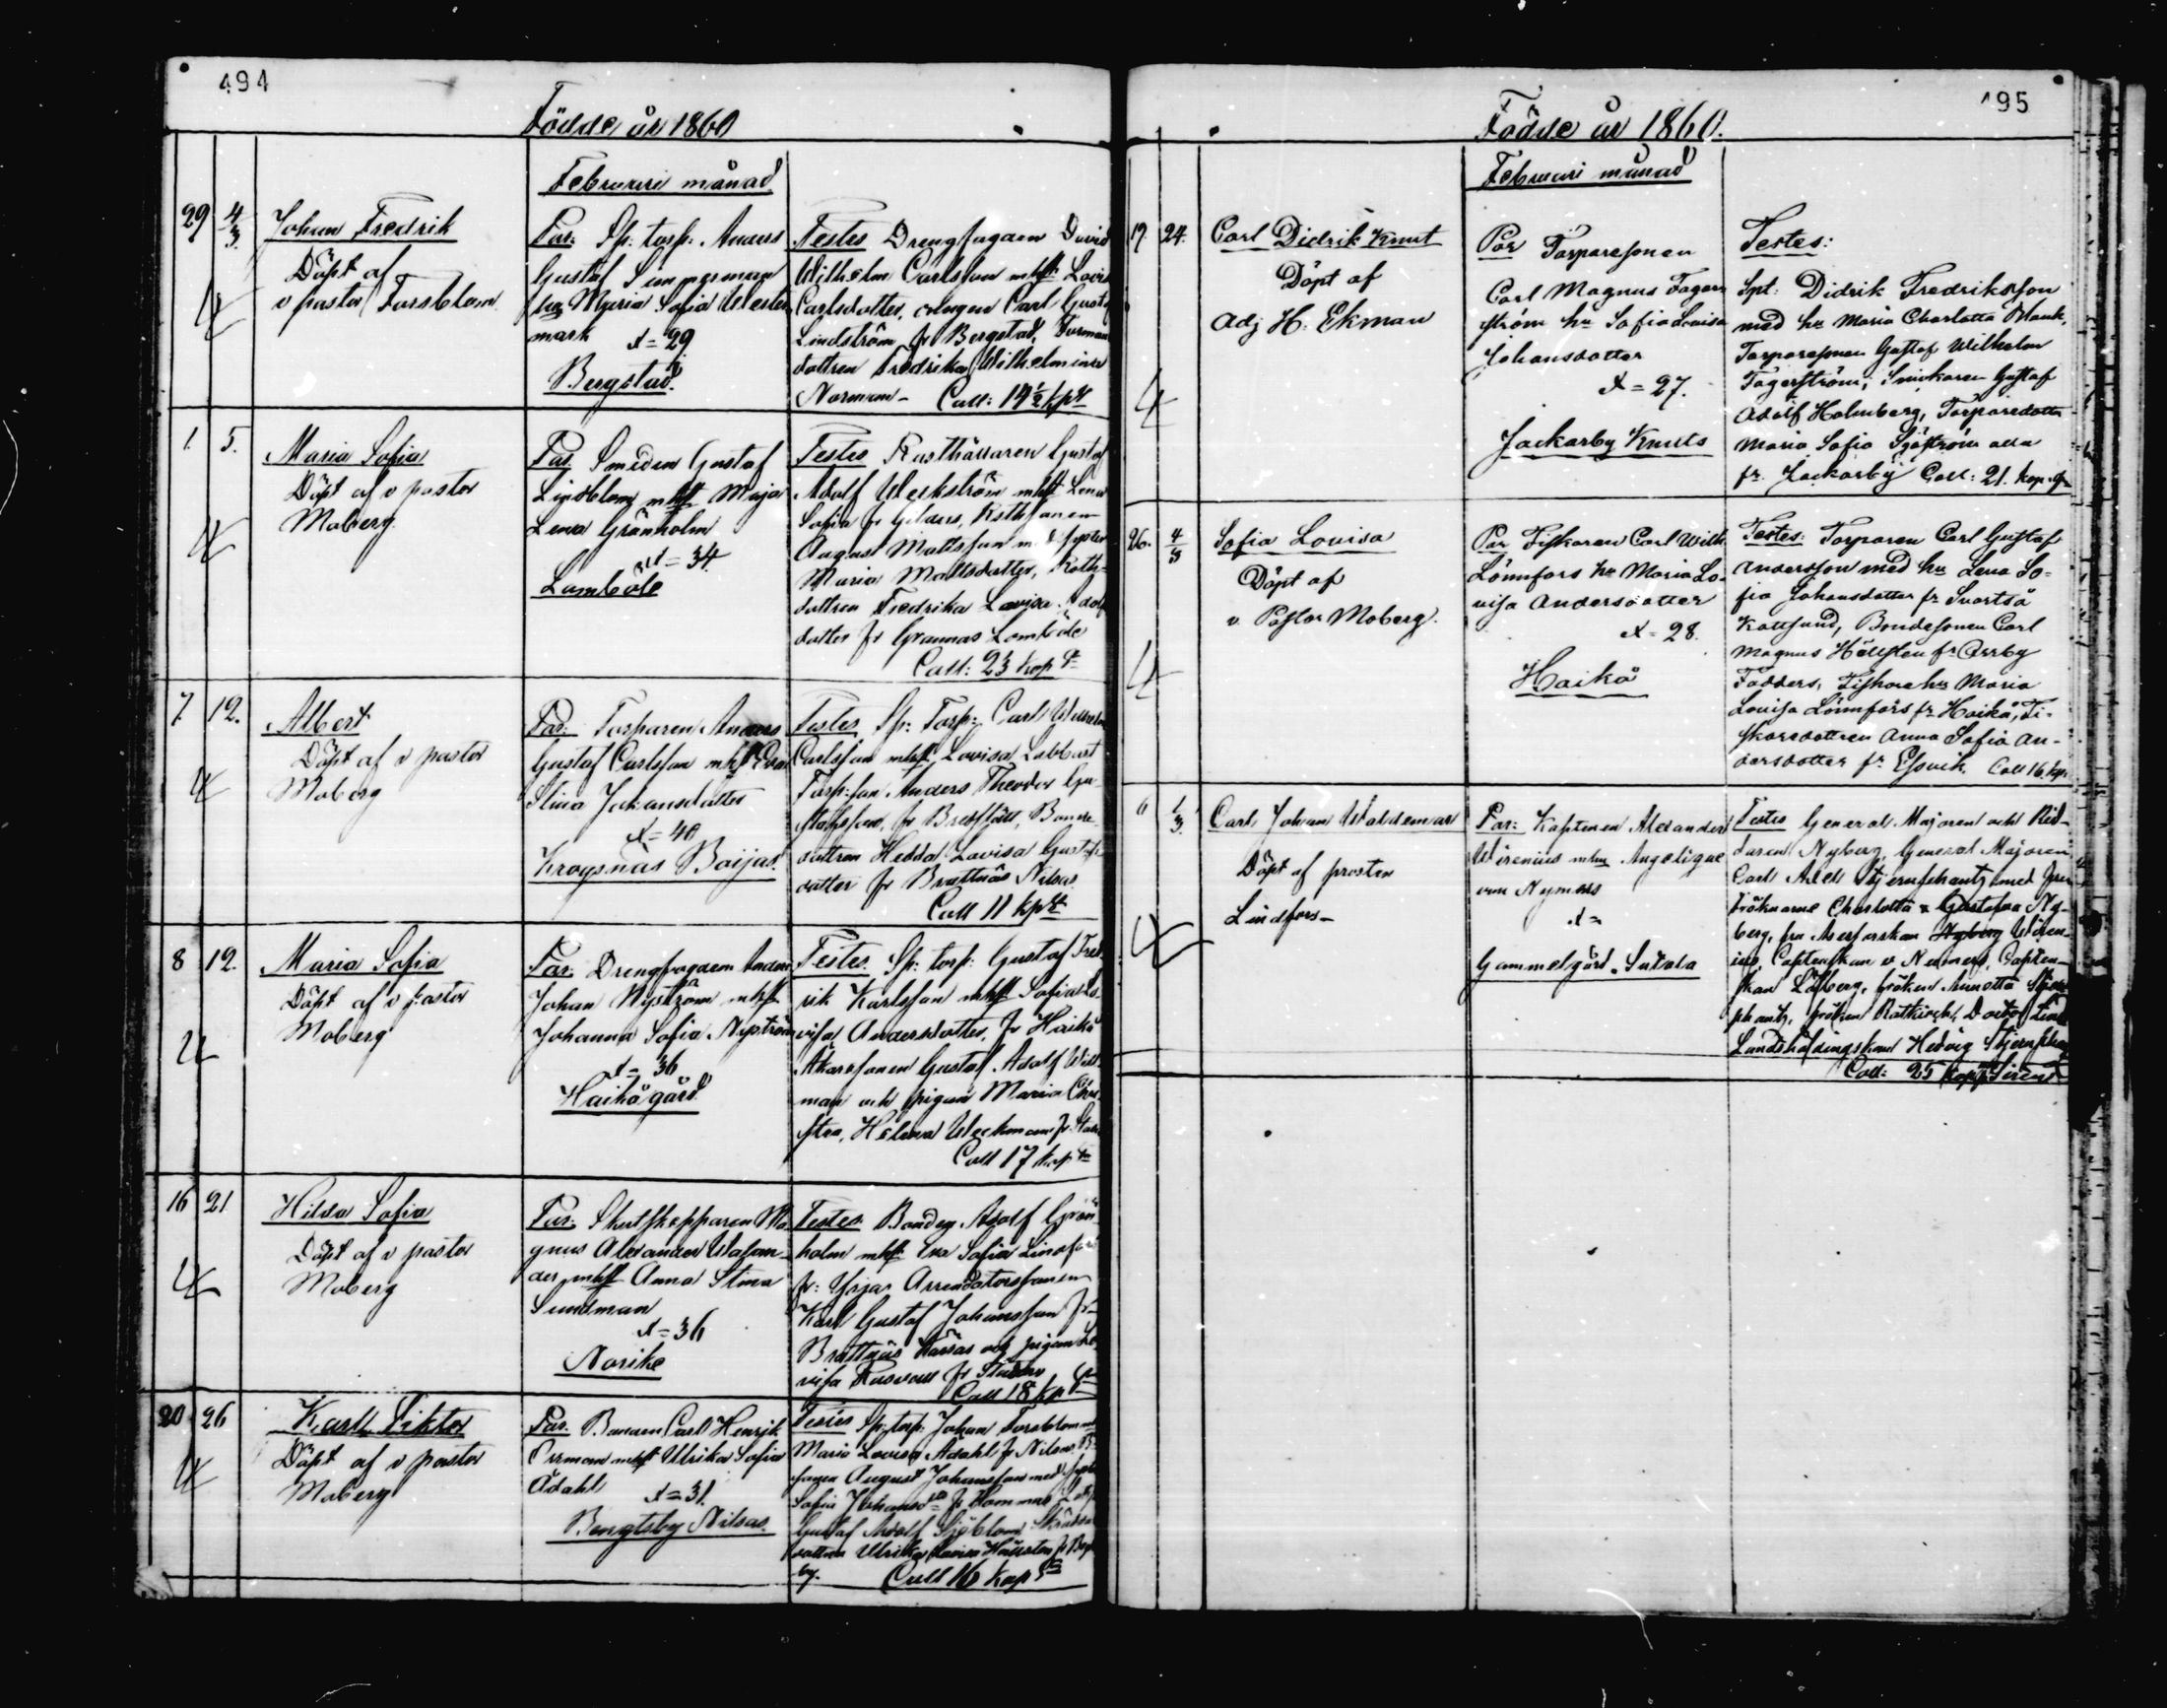 494
Födde år 1860
Februari månad
29 4/3. Johan Fredrik
Döpt af
v pastor Forsblom
Par: Sp: torp: Anders
Gustaf Simmerman
hu Maria Sofia Wester
mark
x = 29
Bergstad
Testes Drengfogden David
Wilhelm Carlsson mhst Lovis
Carlsdotter, Carl Gustaf
Lindström fr Bergstad,
dottren Fredrika Wilhelmina
Norman - Coll: 19½ kp sr
1. 5. Maria Sofia
Döpt af v pastor
Moberg
Par Smeden Gustaf
Lindblom mhst Maja
Lena Grönholm
x = 34
Lambole
Testes Rusthållaren Gustaf
Adolf Weckström mhst Lena
Sofia fr Gilders,
August Mattsson med syster
Maria Mattsdotter,
dottren Fredrika Lovisa Adolf
dotter fr Grannas Lomböle
Coll: 23 kop sr
7 12. Albert
Döpt af v pastor
Moberg
Par: Torparen Anders
Gustaf Carlsson mhst Eva
Stina Johansdotter
x = 40
Krogsnäs Böijas
Testes Sp: Torp: Carl Wilhelm
Carlsson mhst Lovisa Labbart
Torp:son Anders Theodor Gu-
stafsson, fr Bredfjäll, Bonde
dottren Hedda Lovisa Gustafs
dotter fr Brattnäs Nilsas
Coll 11 kp sr
8 12. Maria Sofia
Döpt af v pastor
Moberg
Par. Drengfogden Anders
Johan Nyström mhst
Johanna Sofia Nyström
x = 36
Haikogård
Testes. Sp: torp: Gustaf Fred
rik Karlsson mhst Sofia Lo
visa Andersdotter, fr Haikå
Gustaf Adolf Will
man och pigan Maria Chri
stna, Helena Weckman fr
Coll 17 kop sr
16 21 Hilda Sofia
Döpt af v pastor
Moberg
Par: Skutskepparen Ma
gnus Alexander Walan-
der mhst Anna Stina
Sundman
x = 36
Norike
Testes. Bonden Adolf Grön
holm mhst Eva Sofia Lindfors
fr: Yrjas Arrendatorssonen
Karl Gustaf Johansson fr
Brattnäs Kassas och pigan Lo
visa fr
Coll 18 kp sr
20 26 Karl Viktor
Döpt af v pastor
Moberg
Par. Bonden Carl Henrik
Örrman mhst Ulrika Sofia
Ådahl
x = 31.
Bengtsby Nilsas.
Testes Sp: torp: Johan Forsblom
Maria Lovisa Ådahl fr Nilsas
sonen August Johansson med syster
Sofia fr Hommas
Gustaf Adolf Sjöblom
dottren Ulrika Lovisa Hällsten fr
by. Coll 16 kop sr
195
Födde år 1860.
Februari månad
19 24. Carl Didrik Knut
Döpt af
Adj H. Ekman
Par Torparesonen
Carl Magnus Fager
ström hu Sofia Lovisa
Johansdotter
x = 27.
Jackarby Knuts
Testes:
Spt: Didrik Fredriksson
med hu Maria Charlotta Blank,
Torparesonen Gustaf Wilhelm
Fagerström, Snickaren Gustaf
Adolf Holmberg, Torparedotter
Maria Sofia Sjöström alla
fr. Jackarby Coll: 21. kop. sr
26. 4/3 Sofia Lovisa
Döpt af
v. Pastor Moberg.
Par Fiskaren Carl Wilh.
Lönnfors hu Maria Lo-
visa Andersdotter
x = 28.
Haikå
Testes: Torparen Carl Gustaf
Andersson med hu Lena So-
fia Johansdotter fr Svartså
Kottsund, Bondesonen Carl
Magnus Hällsten fr Orrby
Fadders, Fiskare hu Maria
Lovisa Lönnfors fr Haikå, Fi-
skaredottren Anna Sofia An-
dersdotter fr Essvik. Coll 16 kp.
6 1/3. Carl Johan Waldemar
Döpt af prosten
Lindfors -
Par: Kaptenen Alexander
Wirenius mhu Angelique
von Nymers
x =
Gammelgård Sukola
Testes General Majoren och Rid-
daren Nyberg, General Majoren
Carl Axel Stjernschantz med fru
fröknarne Charlotta & Gustafva Ny-
berg, fru Assessorskan Nyberg Wiren-
ius, Captenskan v Nymers, Capten-
skan Löfberg, fröken Annette Stjern
schantz, fröken Rotkirch, Doctor
Landshöfdingskan Hedvig Stjernschantz
Coll: 25 kop Silver